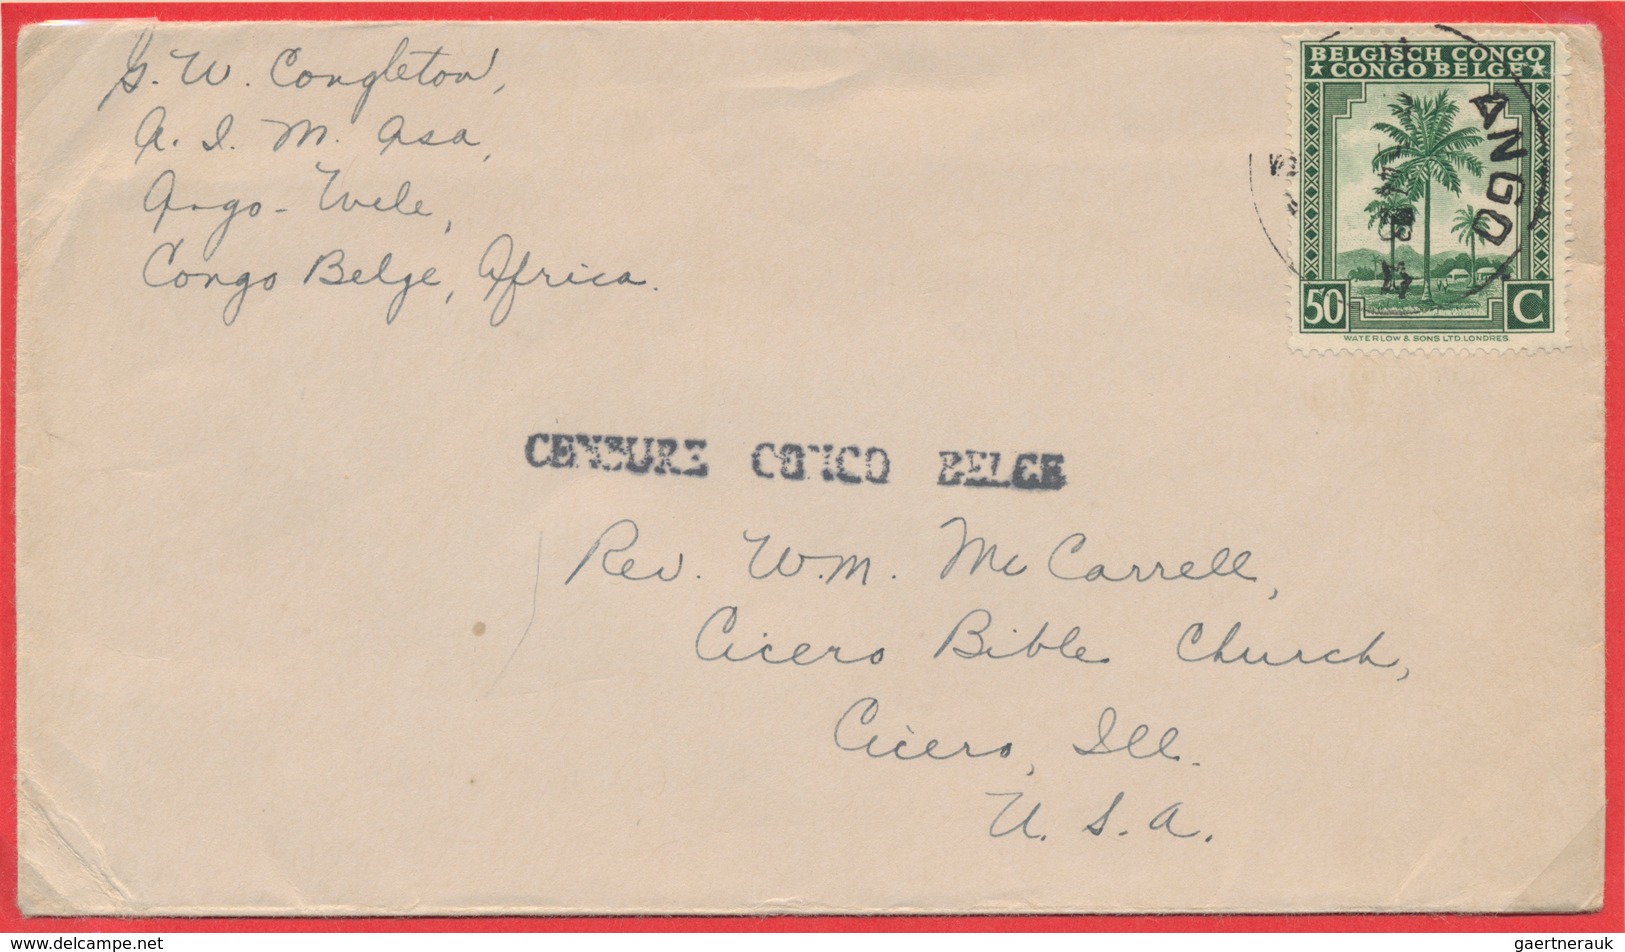 G. W. Congleton,
A. I. M. Asa,
Ango-Uele,
Congo Belge, Africa.
BELGISCH CONGO
★ CONGO BELGE ★
ANGO
50 C
WATERLOW & SONS LTD. LONDRES.
CENSURE CONGO BELGE
Rev. W.M. McCarrell,
Cicero Bible Church,
Cicero, Ill.
U. S. A.
www.delcampe.net
gaertnerauk